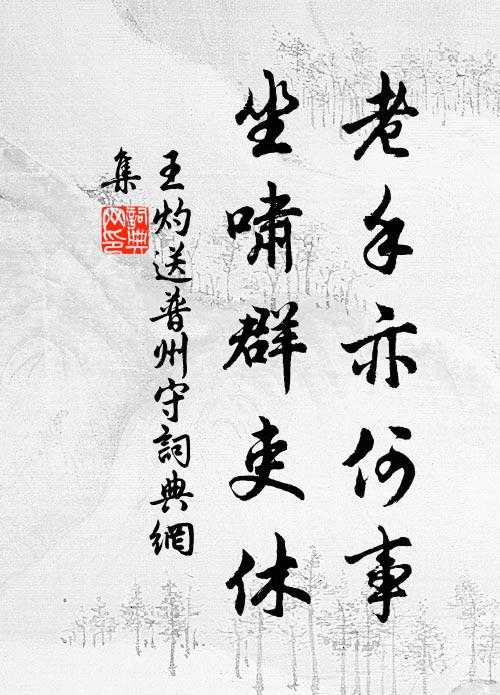 老手亦何事
坐嘯群吏休
王灼送普州守詞典網
集
詞典
网印